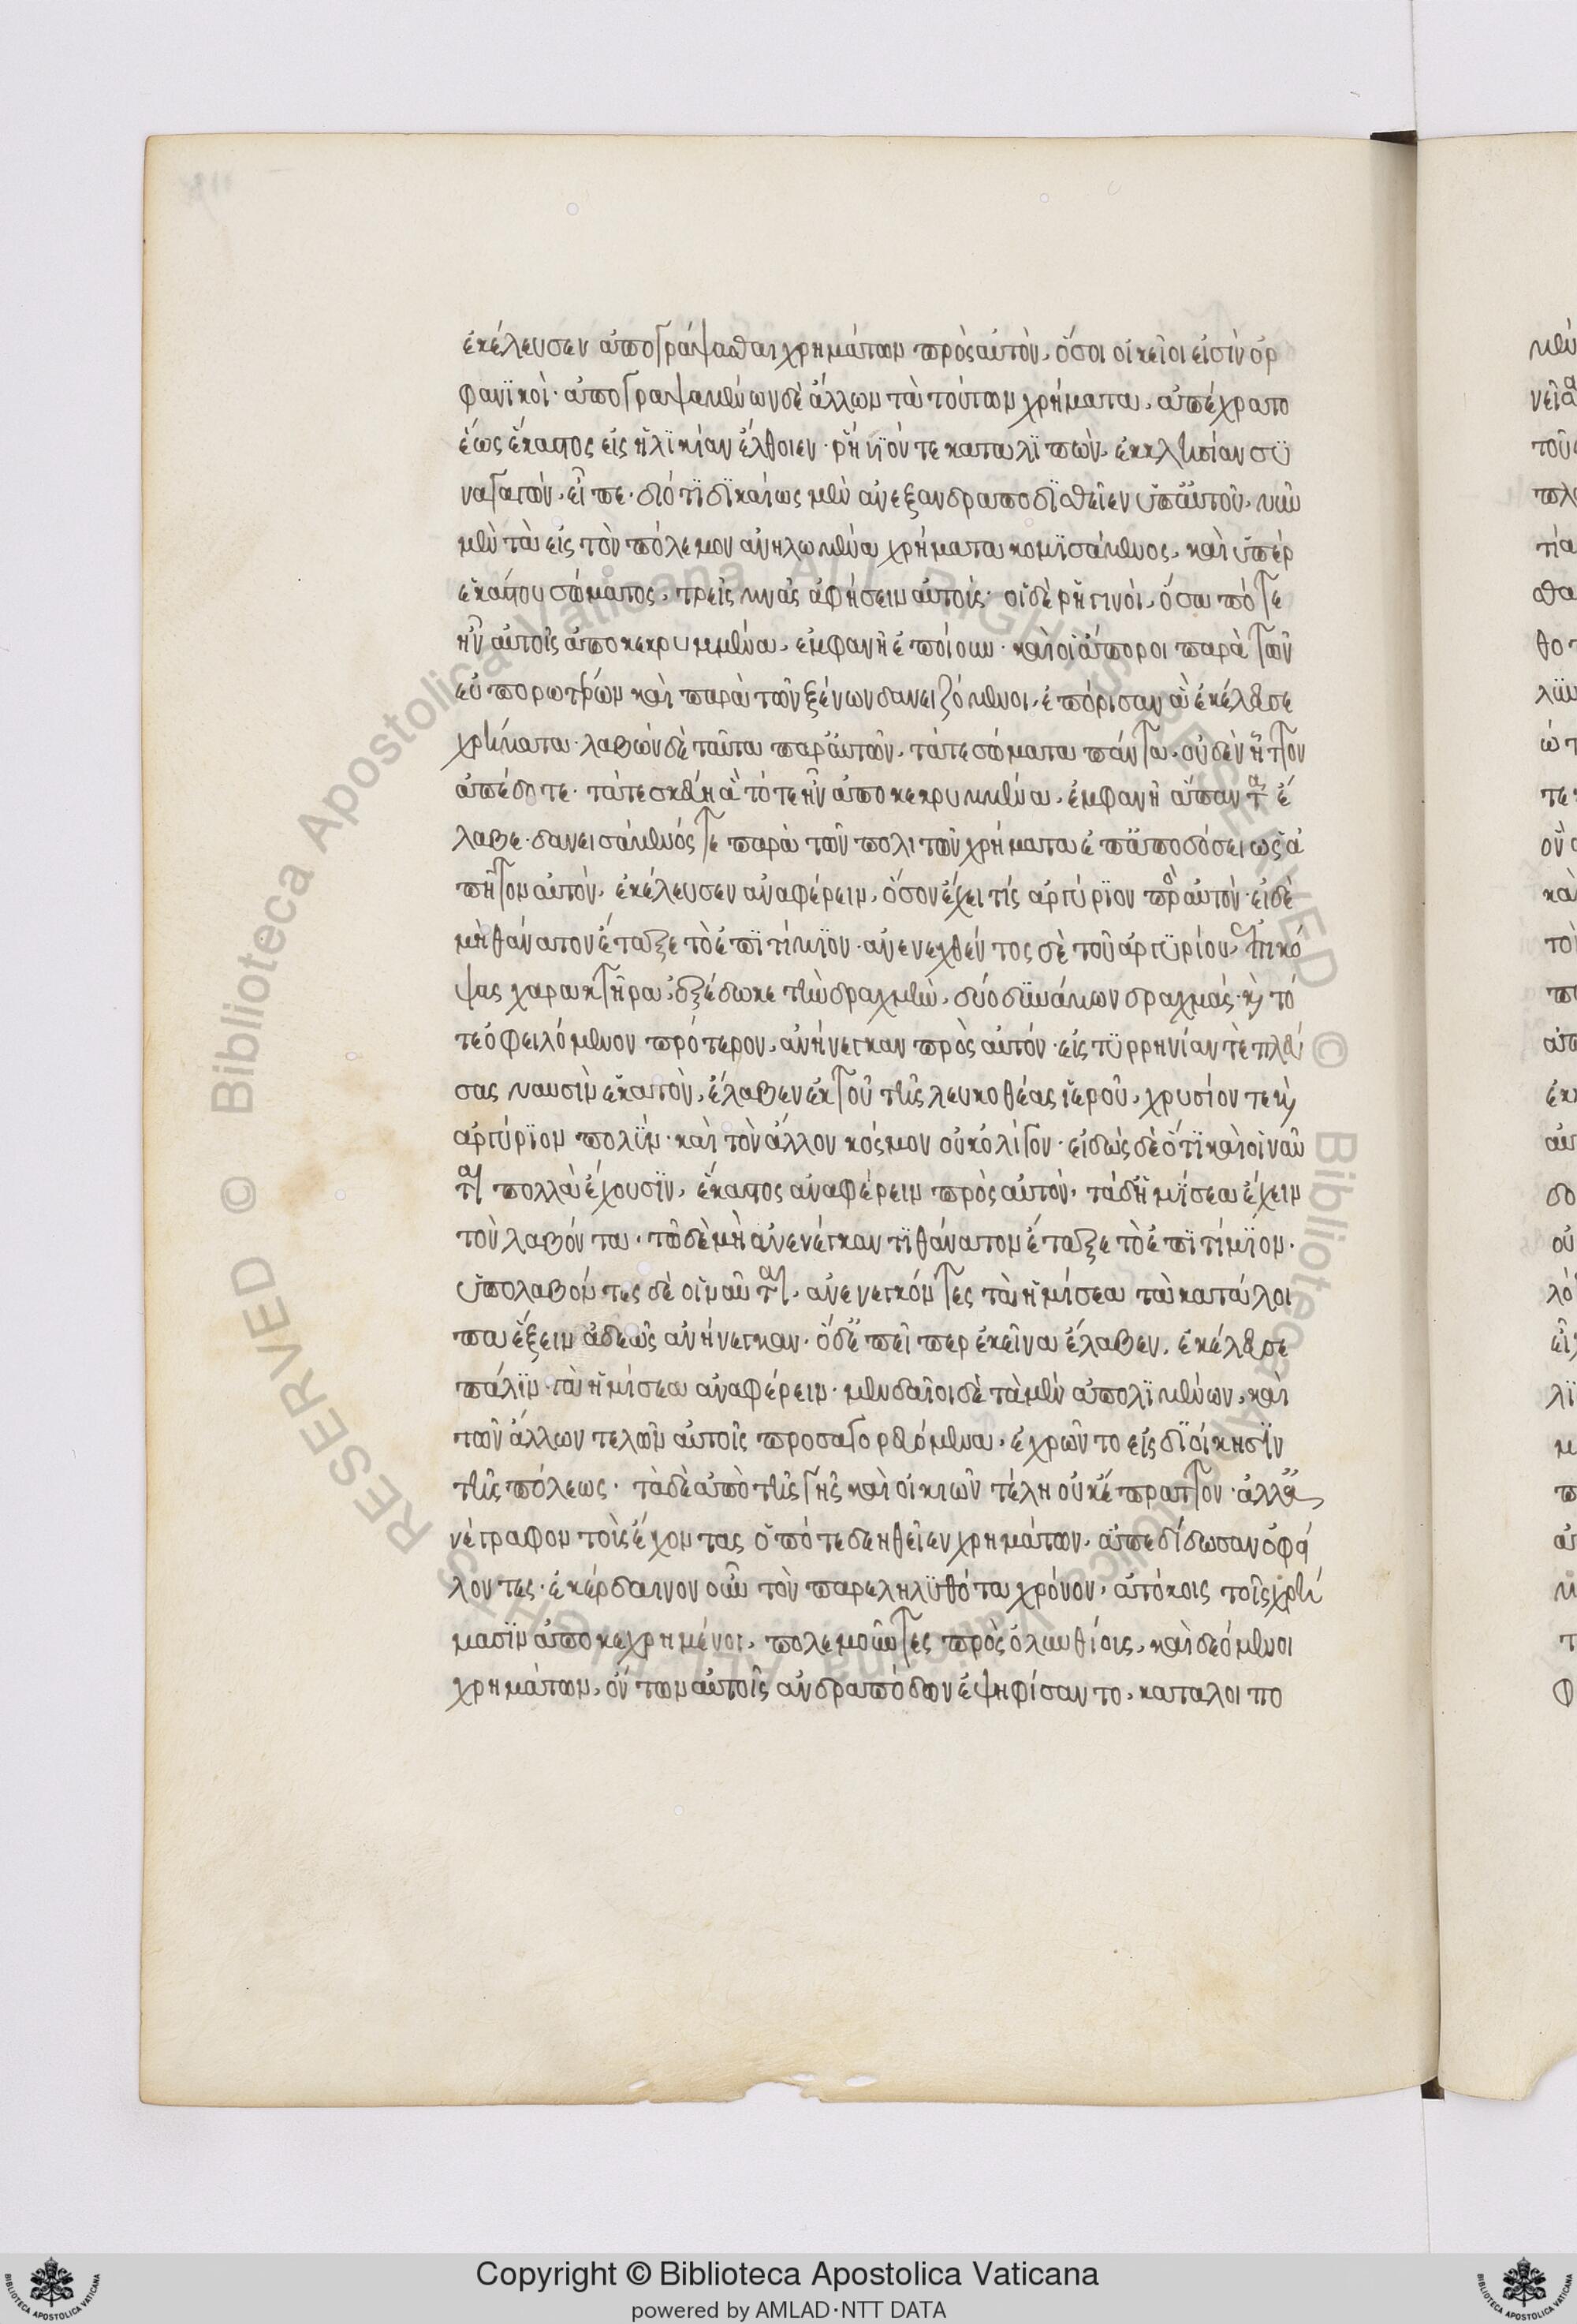 ἐκέλευσεν ἀπογράψασθαι χρημάτων πρὸς αὐτὸν, ὅσοι οἰκεῖοι εἰσὶν ὀρ
φανϊκοὶ· ἀπογραψαμένων δὲ ἄλλων τὰ τούτων χρήματα, ἀπέχρατο
ἕως ἕκαστος εἰς ἡλϊκίαν ἔλθοιεν· ῥήγϊόν τε καταλϊπὼν, ἐκκλησίαν συ
ναγαγὼν, εἶπε· διότϊ δϊκαίως μὲν ἀνεξανδραποδϊσθεῖεν ὑπ' αὐτοῦ, νῦν
μὲν τὰ εἰς τὸν πόλεμον ἀνηλωμένα χρήματα κομϊσάμενος, καὶ ὑπὲρ
ἑκάστου σώματος, τρεῖς μνᾶς ἀφήσειν αὐτοὺς· οἱ δὲ ῥηγινοὶ, ὅσα πότε
ἦν αὐτοῖς ἀποκεκρυμμένα, ἐμφανῆ ἐποίουν· καὶ οἱ ἄποροι παρὰ τῶν
εὐπορωτέρων καὶ παρὰ τῶν ξένων δανειζόμενοι, ἐπόρισαν ἃ ἐκέλευσε
χρήματα· λαβὼν δὲ ταῦτα παρ' αὐτῶν, τά τε σώματα πάντα, οὐδὲν ἧττον
ἀπέδοτε· τά τε σκεύη ἃ τότε ἦν ἀποκεκρυμμένα, ἐμφανῆ ἅπαντα ἔ
λαβε· δανεισάμενός τε παρὰ τῶν πολιτῶν χρήματα ἐπ' ἀποδόσει ὡς ἀ
πῄτουν αὐτὸν, ἐκέλευσεν ἀναφέρειν, ὅσον ἔχει τίς ἀργύρϊον πρὸς αὐτὸν· εἰ δὲ
μὴ θάνατον ἔταξε τὸ ἐπϊτίμϊον· ἀνενεχθέντος δὲ τοῦ ἀργϋρίου, ἐπικό
ψας χαρακτῆρα, ἐξέδωκε τὴν δραχμὴν, δύο δϋναμένων δραχμάς· καὶ τό
τε ὀφειλόμενον πρότερον, ἀνήνεγκαν πρὸς αὐτόν· εἰς τϋρρηνίαν τὲ πλεύ
σας ναυσὶν ἑκατὸν, ἔλαβεν ἐκ τοῦ τῆς λευκοθέας ἱεροῦ, χρυσίον τε καὶ
ἀργύρϊον πολὺν· καὶ τὸν ἄλλον κόσμον οὐκ ὀλίγον· εἰδὼς δὲ ὅτϊ καὶ οἱ ναῦ
ται πολλὰ ἔχουσϊν, ἕκαστος ἀναφέρειν πρὸς αὐτὸν, τὰ δ' ἡμϊσεα ἔχειν
τὸν λαβόντα· τῷ δὲ μὴ ἀνενέγκαντϊ θάνατον ἔταξε τὸ ἐπϊτίμϊον·
ὑπολαβόντες δὲ οἱ ναῦται, ἀνενεγκόντες τὰ ἡμίσεα τὰ κατάλοι
πα ἕξειν ἀδεῶς ἀνήνεγκαν· ὁ δ' ἐπείπερ ἐκεῖνα ἔλαβεν, ἐκέλευσε
πάλϊν τὰ ἡμίσεα ἀναφέρειν· μενδαῖοι δὲ τὰ μὲν ἀπολϊμένων, καὶ
τῶν ἄλλων τελῶν αὐτοῖς προσαγορευόμενα, ἐχρῶντο εἰς δϊοίκησϊν
τῆς πόλεως· τὰ δὲ ἀπὸ τῆς γῆς καὶ οἰκιῶν τέλη οὐκ ἔπραττον· ἀλλ' ἀ
νέγραφον τοὺς ἔχοντας ὁπότε δεηθεῖεν χρημάτων, ἀπεδίδωσαν ὀφεί
λοντες· ἐκέρδαινον οὖν τὸν παρεληλϋθότα χρόνον, ἀτόκοις τοῖς χρή
μασϊν ἀποκεχρημένοι, πολεμοῦντες πρὸς ὀλυνθίους, καὶ δεόμενοι
χρημάτων, ὄντων αὐτοῖς ἀνδραπόδων ἐψηφίσαντο, καταλοιπο
Copyright © Biblioteca Apostolica Vaticana
powered by AMLAD·NTT DATA